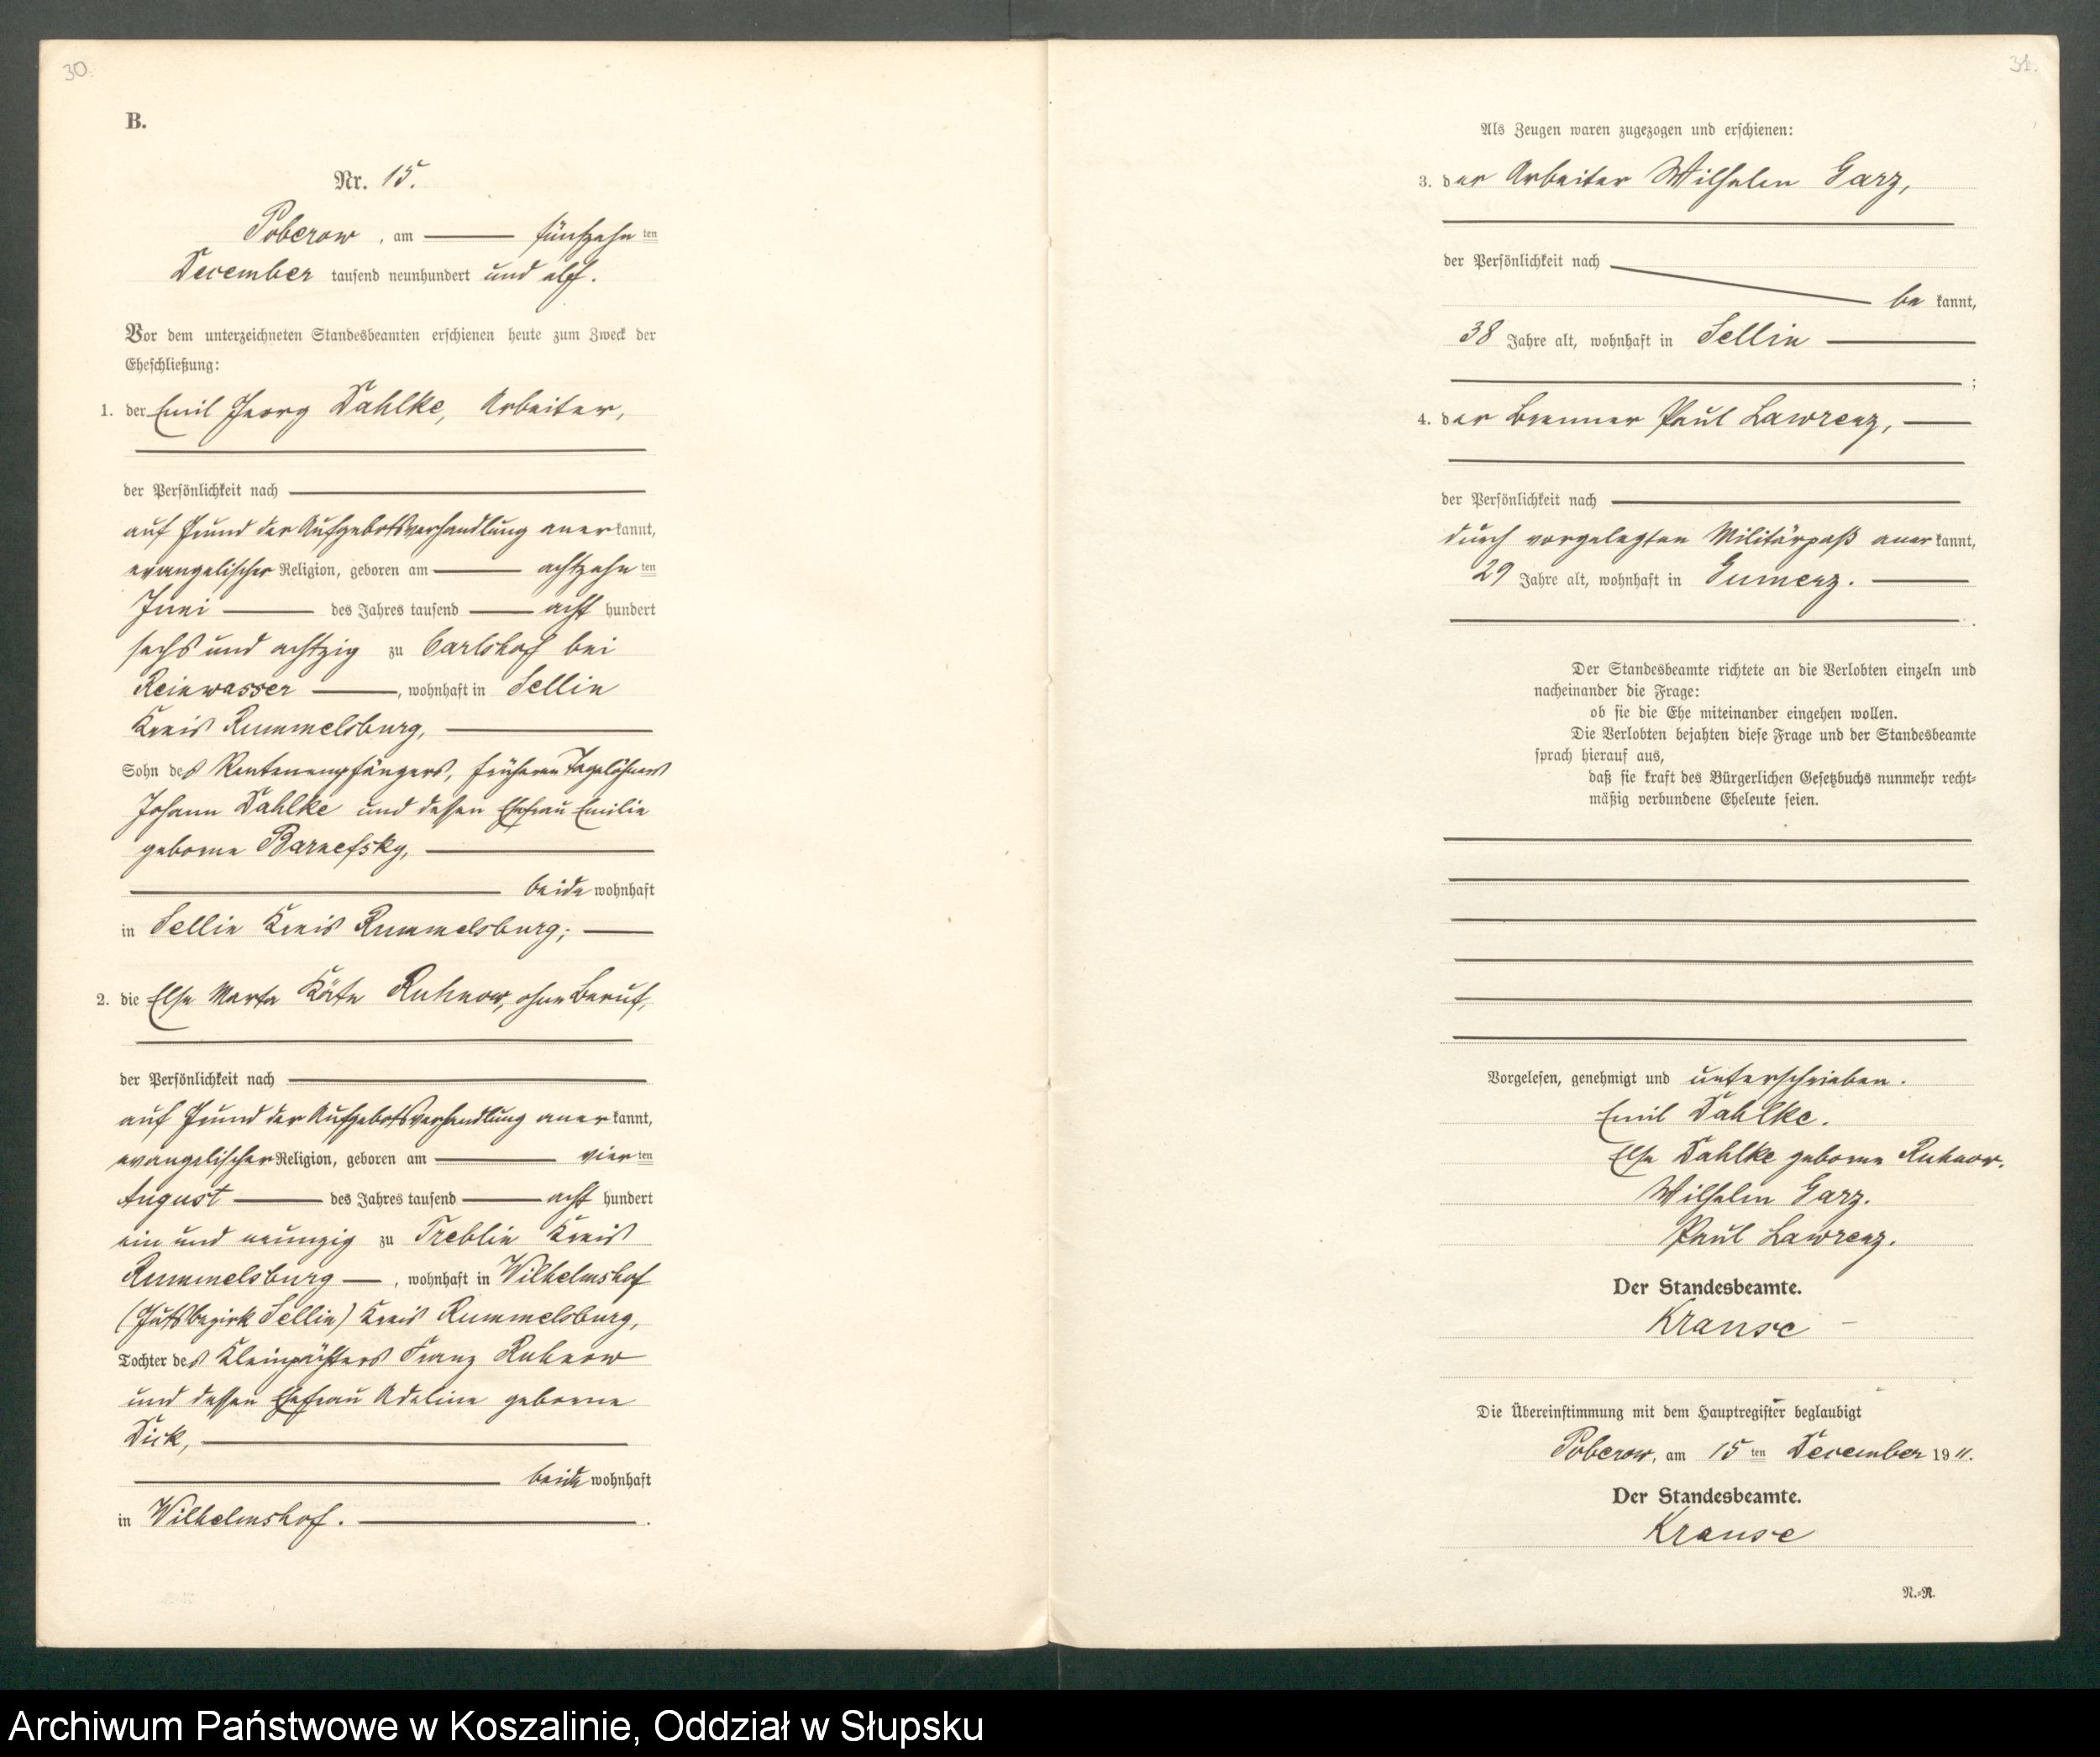 30.
B.
Nr. 15.
Poberow, am fünfzehn ten
December tausend neunhundert und elf.
Vor dem unterzeichneten Standesbeamten erschienen heute zum Zweck der
Eheschließung:
1. der Emil Georg Dahlke, Arbeiter,
der Persönlichkeit nach
auf Grund der Aufgebotsverhandlung aner kannt,
evangelischer Religion, geboren am achtzehn ten
Juni des Jahres tausend acht hundert
sechs und achtzig zu Carlshof bei
Reinwasser, wohnhaft in Sellin
Kreis Rummelsburg,
Sohn des Rentenempfängers, früheren Tagelöhners
Johann Dahlke und dessen Ehefrau Emilie
geborne Barnefsky,
beide wohnhaft
in Sellin Kreis Rummelsburg;
2. die Else Marta Käte Ruhnow, ohne Beruf,
der Persönlichkeit nach
auf Grund der Aufgebotsverhandlung aner kannt,
evangelischer Religion, geboren am vier ten
August des Jahres tausend acht hundert
ein und neunzig zu Treblin Kreis
Rummelsburg, wohnhaft in Wilhelmshof
(Gutsbezirk Sellin) Kreis Rummelsburg,
Tochter des Kleinpächters Franz Ruhnow
und dessen Ehefrau Adeline geborne
Dick,
beide wohnhaft
in Wilhelmshof.
Als Zeugen waren zugezogen und erschienen:
3. der Arbeiter Wilhelm Garz,
der Persönlichkeit nach
be kannt,
38 Jahre alt, wohnhaft in Sellin
;
4. der Brenner Paul Lawrenz,
der Persönlichkeit nach
durch vorgelegten Militärpaß aner kannt,
29 Jahre alt, wohnhaft in Gumenz.
Der Standesbeamte richtete an die Verlobten einzeln und
nacheinander die Frage:
ob sie die Ehe miteinander eingehen wollen.
Die Verlobten bejahten diese Frage und der Standesbeamte
sprach hierauf aus,
daß sie kraft des Bürgerlichen Gesetzbuchs nunmehr recht-
mäßig verbundene Eheleute seien.
Vorgelesen, genehmigt und unterschrieben.
Emil Dahlke.
Else Dahlke geborne Ruhnow.
Wilhelm Garz.
Paul Lawrenz.
Der Standesbeamte.
Krause
Die Übereinstimmung mit dem Hauptregister beglaubigt
Poberow, am 15 ten December 19 11.
Der Standesbeamte.
Krause
N.-R.
Archiwum Państwowe w Koszalinie, Oddział w Słupsku